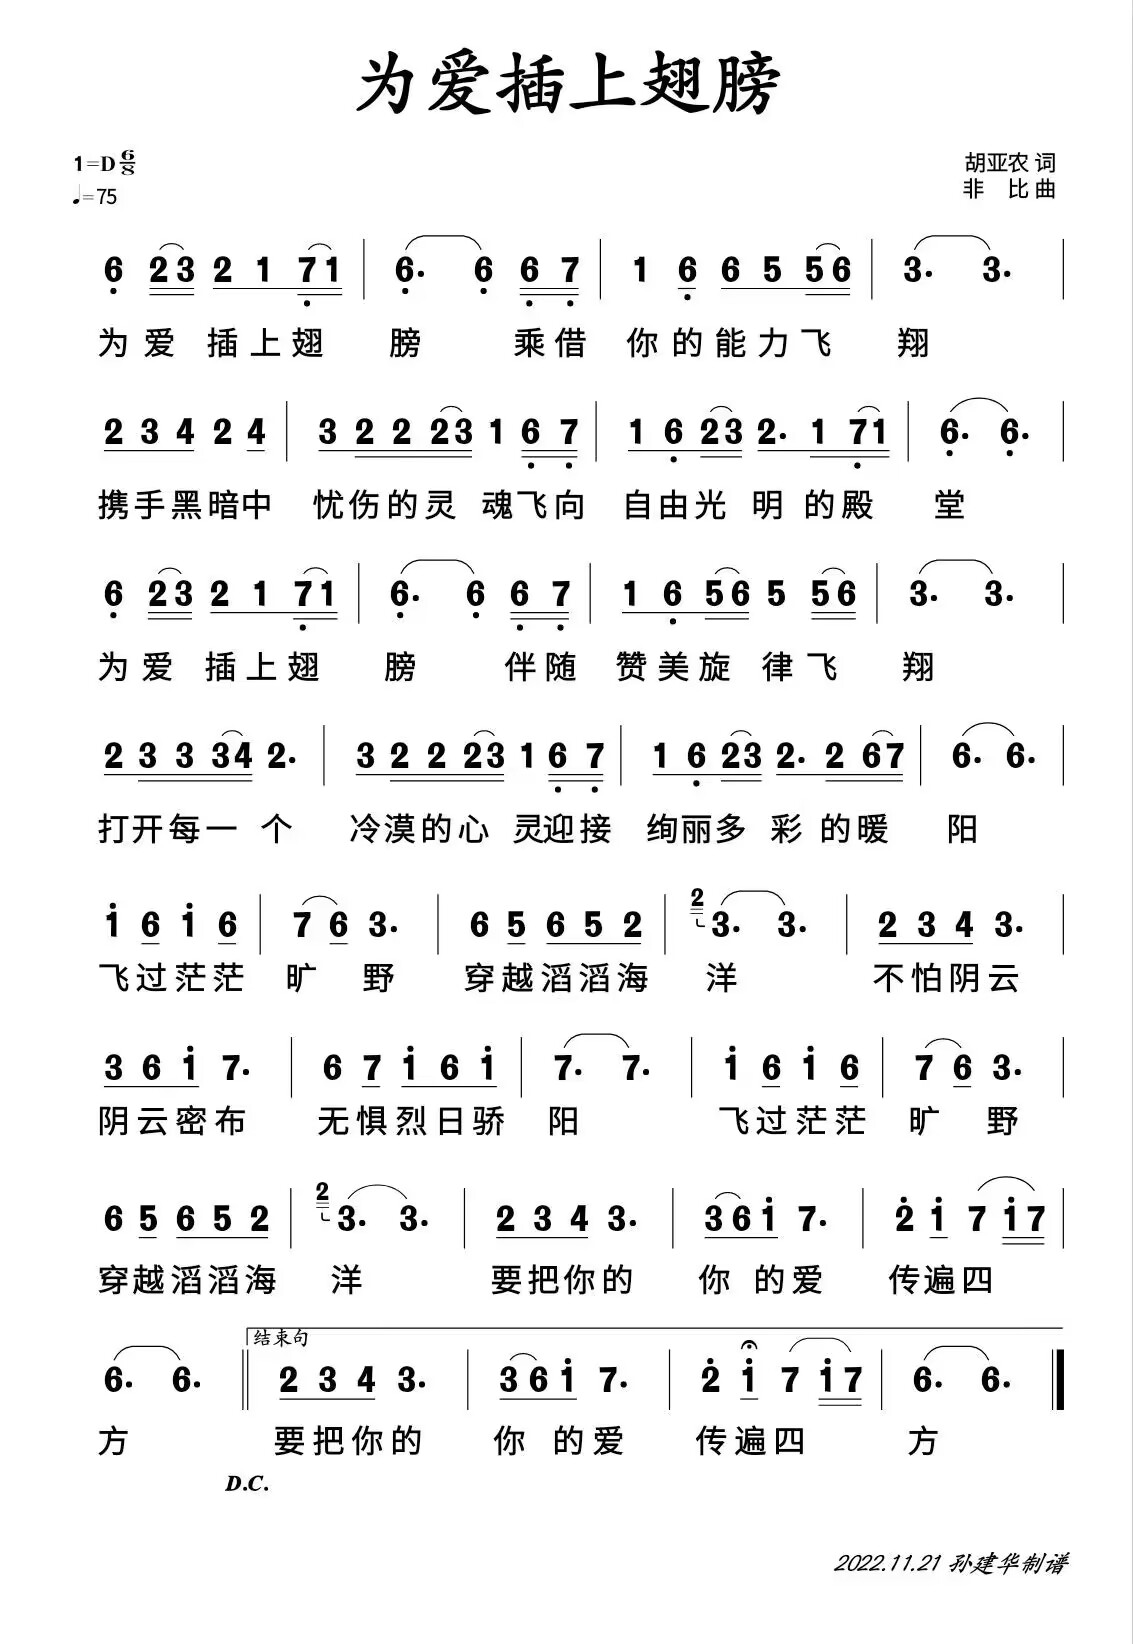 为爱插上翅膀
1=D 6/8
胡亚农 词
♩=75
非 比 曲
6 23 2 1 71 | 6. 6 6 7 | 1 6 6 5 56 | 3. 3. |
为爱 插上翅 膀 乘借 你的能力飞 翔
2 3 4 2 4 | 3 2 2 23 1 6 7 | 1 6 23 2. 1 71 | 6. 6. |
携手黑暗中 忧伤的灵 魂飞向 自由光 明 的殿 堂
6 23 2 1 71 | 6. 6 6 7 | 1 6 56 5 56 | 3. 3. |
为爱 插上翅 膀 伴随 赞美旋 律飞 翔
2 3 3 34 2. | 3 2 2 23 1 6 7 | 1 6 23 2. 2 67 | 6. 6. |
打开每一 个 冷漠的心 灵迎接 绚丽多 彩 的暖 阳
i 6 i 6 | 7 6 3. | 6 5 6 5 2 | 2 3. 3. | 2 3 4 3. |
飞过茫茫 旷 野 穿越滔滔海 洋 不怕阴云
3 6 i 7. | 6 7 i 6 i | 7. 7. | i 6 i 6 | 7 6 3. |
阴云密布 无惧烈日骄 阳 飞过茫茫 旷 野
6 5 6 5 2 | 2 3. 3. | 2 3 4 3. | 36i 7. | 2 i 7 i7 |
穿越滔滔海 洋 要把你的 你 的爱 传遍四
结束句
6. 6. || 2 3 4 3. | 36i 7. | 2 i 7 i7 | 6. 6. ||
方 要把你的 你 的爱 传遍四 方
D.C.
2022.11.21 孙建华制谱